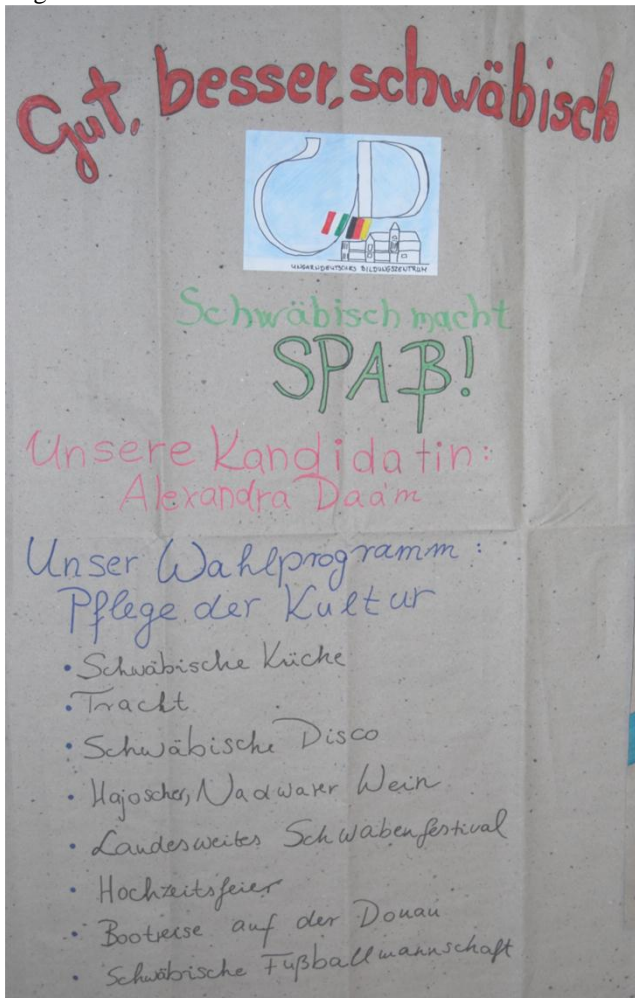 Gut, besser, schwäbisch
UNGARNDEUTSCHES BILDUNGSZENTRUM
Schwäbisch macht
SPAß!
Unsere Kandidatin:
Alexandra Daám
Unser Wahlprogramm:
Pflege der Kultur
• Schwäbische Küche
• Tracht
• Schwäbische Disco
• Hajoscher, Nadwarer Wein
• Landesweites Schwabenfestival
• Hochzeitsfeier
• Bootreise auf der Donau
• Schwäbische Fußballmannschaft